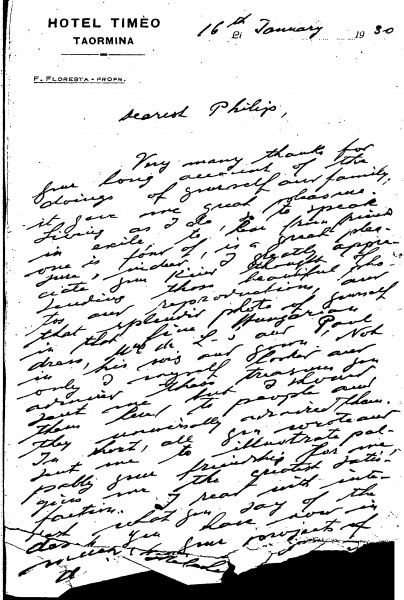 HOTEL TIMÈO
TAORMINA
16th Li January 1930
F. FLORESTA - PROPR.
Dearest Philip,
Very many thanks for
your long account of the
doings of yourself and family,
it gave me great pleasure.
Living as I do, so to speak
in exile, to hear from friends
one is fond of, is a great plea-
sure, indeed, I greatly appre-
ciate your kind thought of
sending those beautiful pho-
tos and reproductions, and
that splendid photo of yourself
in that fine Hungarian
dress, and Paul
in his and gown, Not
only I myself and
admired these treasures you
sent me but I showed
them here to people and
they universally admired them.
In short, all you wrote and
sent me to illustrate pal-
pably your friendship for me
gives me the greatest satis-
faction. I read with inte-
rest what you say of the
you have now in
your projects of